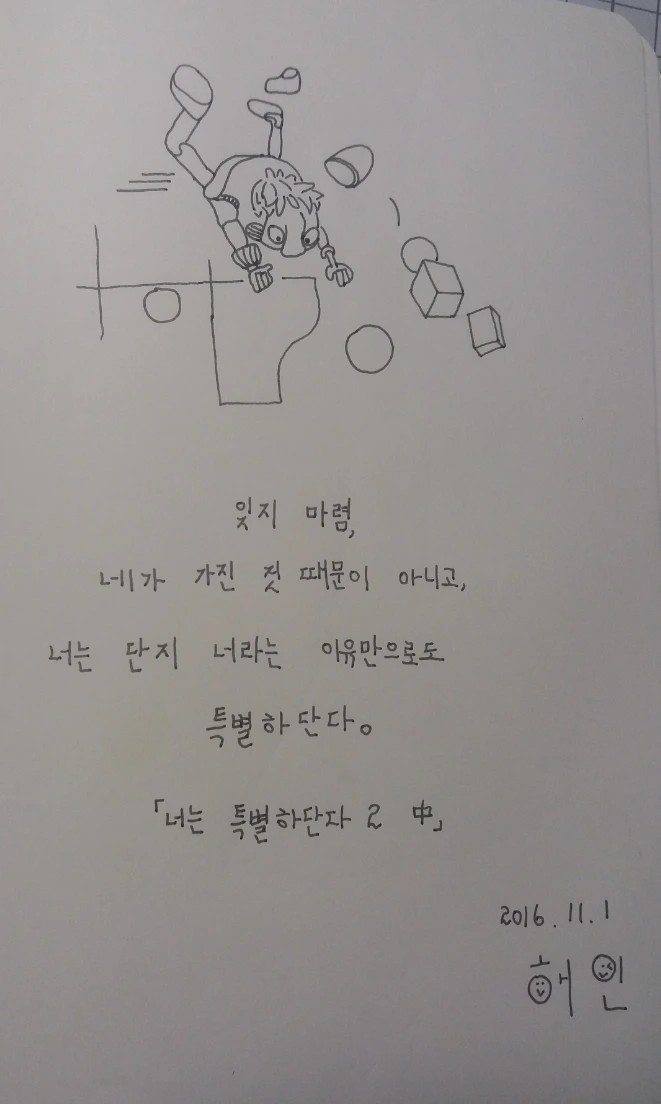 잊지 마렴,
네가 가진 것 때문이 아니고,
너는 단지 너라는 이유만으로도
특별하단다。
「너는 특별하단다 2 中」
2016.11.1
해인